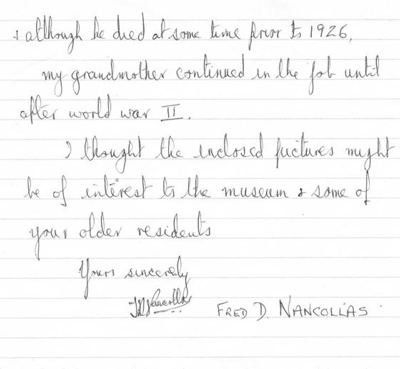 & although he died at some time prior to 1926,
my grandmother continued in the job until
after world war II.
I thought the inclosed pictures might
be of interest to the museum & some of
your older residents
Yours sincerely
FRED D. NANCOLLAS